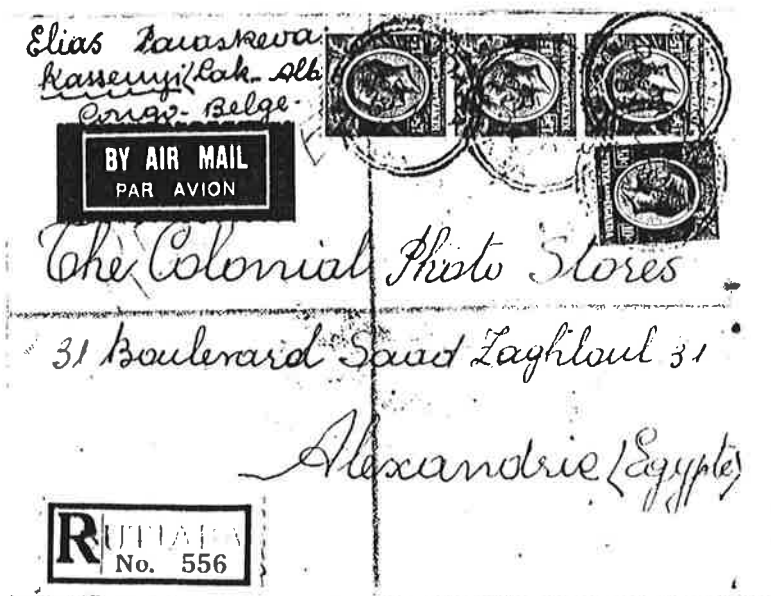 Elias Paraskeva
Kassenyi (Lak- Alb
Congo- Belge-
BY AIR MAIL
PAR AVION
The Colonial Photo Stores
31 Boulevard Saad Zaghloul 31
Alexandrie (Egypte)
R BUTIABA
No. 556